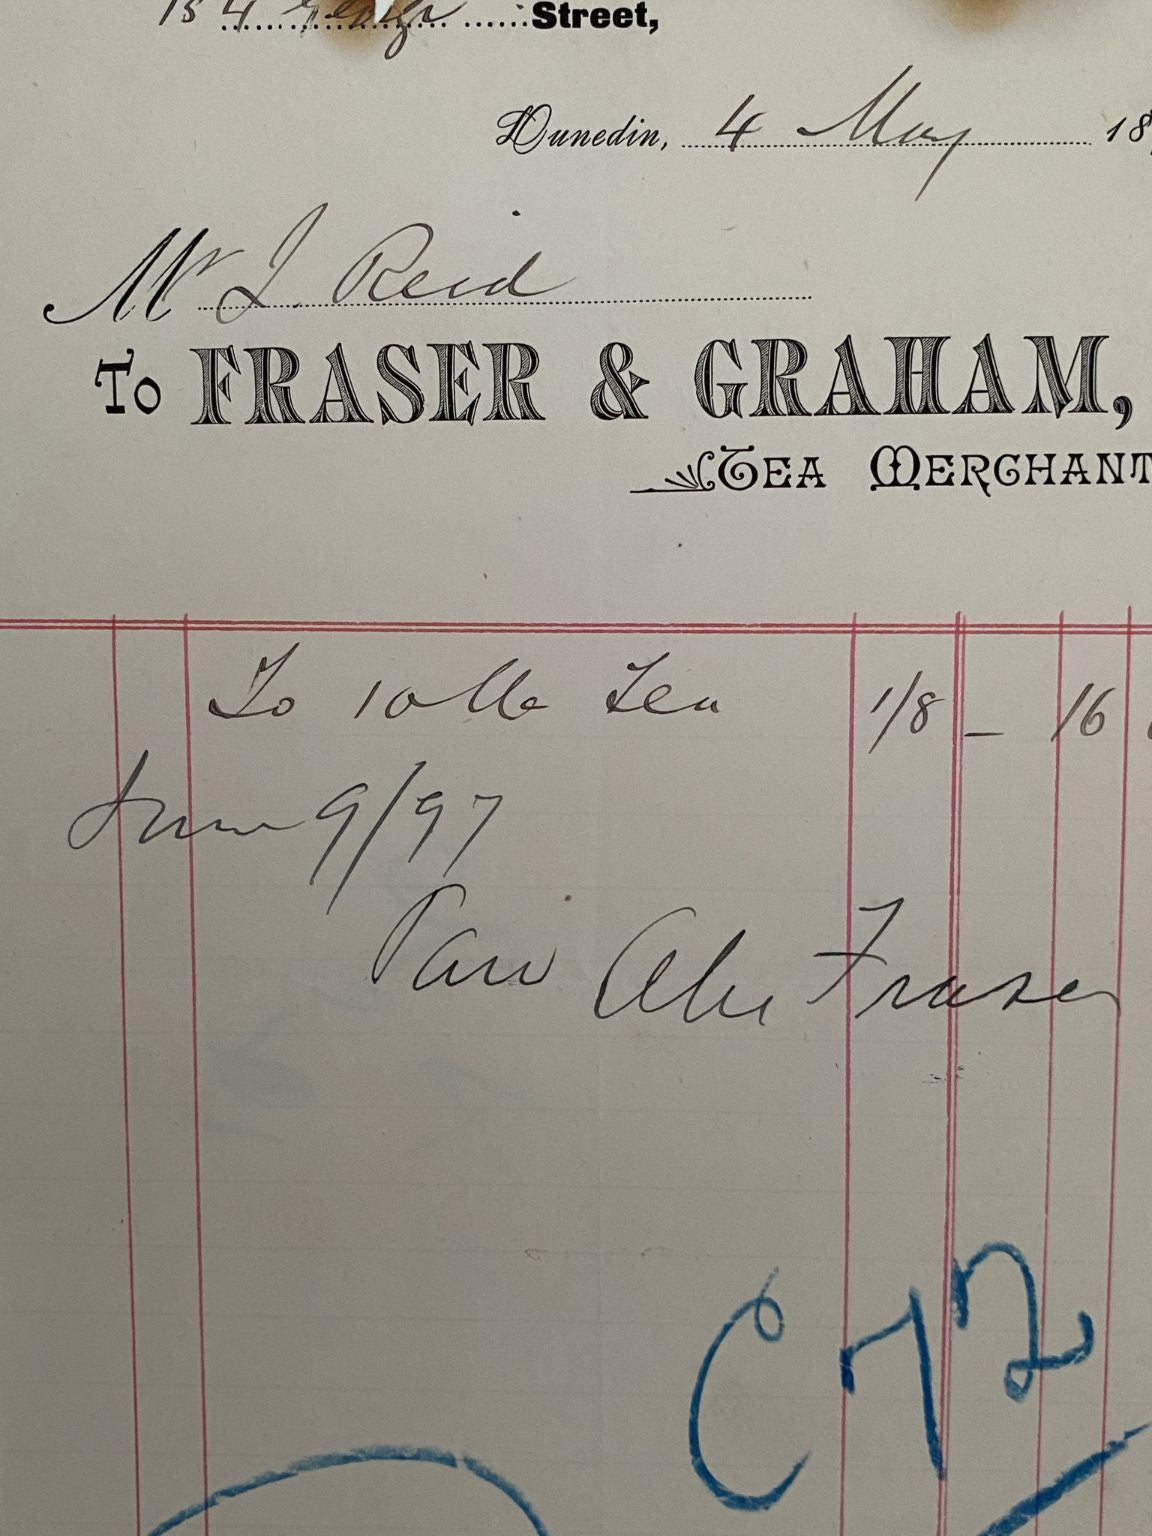 154 George Street,
Dunedin, 4 May 18
Mr J. Reid
To FRASER & GRAHAM,
TEA MERCHANT
To 10 lb Tea 1/8 – 16
June 9/97
Paid Alex Fraser
C 72